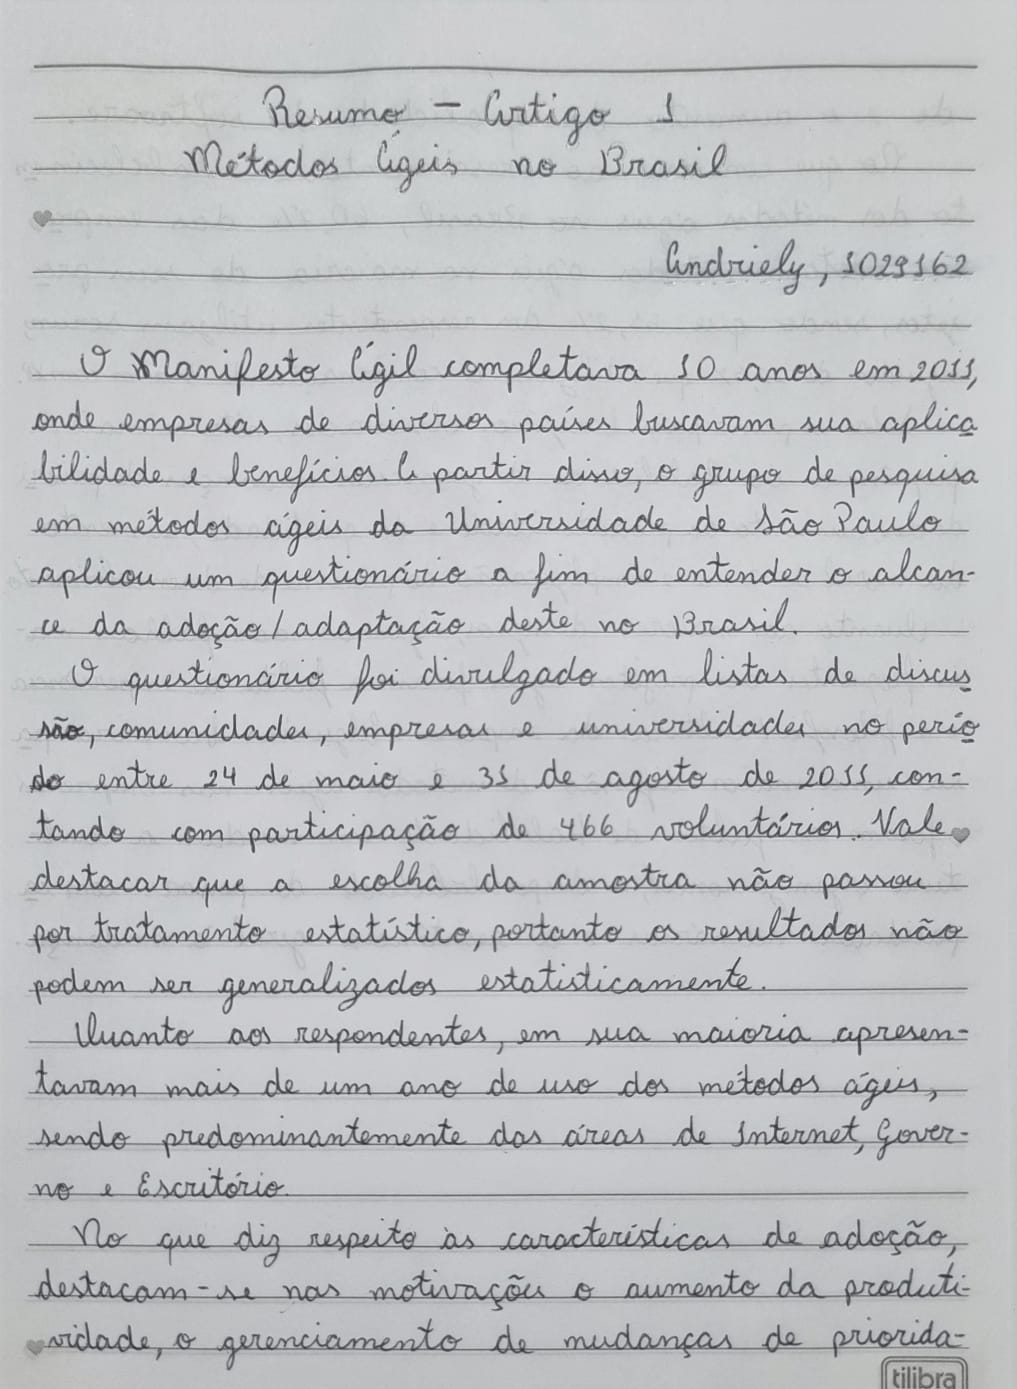 Resumo - Artigo 1
Métodos Ágeis no Brasil
Andriely, 1029162
O Manifesto Ágil completava 10 anos em 2011,
onde empresas de diversos países buscavam sua aplica
bilidade e benefícios. A partir disso, o grupo de pesquisa
em métodos ágeis da Universidade de São Paulo
aplicou um questionário a fim de entender o alcan-
ce da adoção/adaptação deste no Brasil.
O questionário foi divulgado em listas de discus
são, comunidades, empresas e universidades no perío
do entre 24 de maio e 31 de agosto de 2011, con-
tando com participação de 466 voluntários. Vale
destacar que a escolha da amostra não passou
por tratamento estatístico, portanto os resultados não
podem ser generalizados estatisticamente.
Quanto aos respondentes, em sua maioria apresen-
tavam mais de um ano de uso dos métodos ágeis,
sendo predominantemente das áreas de Internet, Gover-
no e Escritório.
No que diz respeito às características de adoção,
destacam-se nas motivações o aumento da produti-
vidade, o gerenciamento de mudanças de priorida-
tilibra